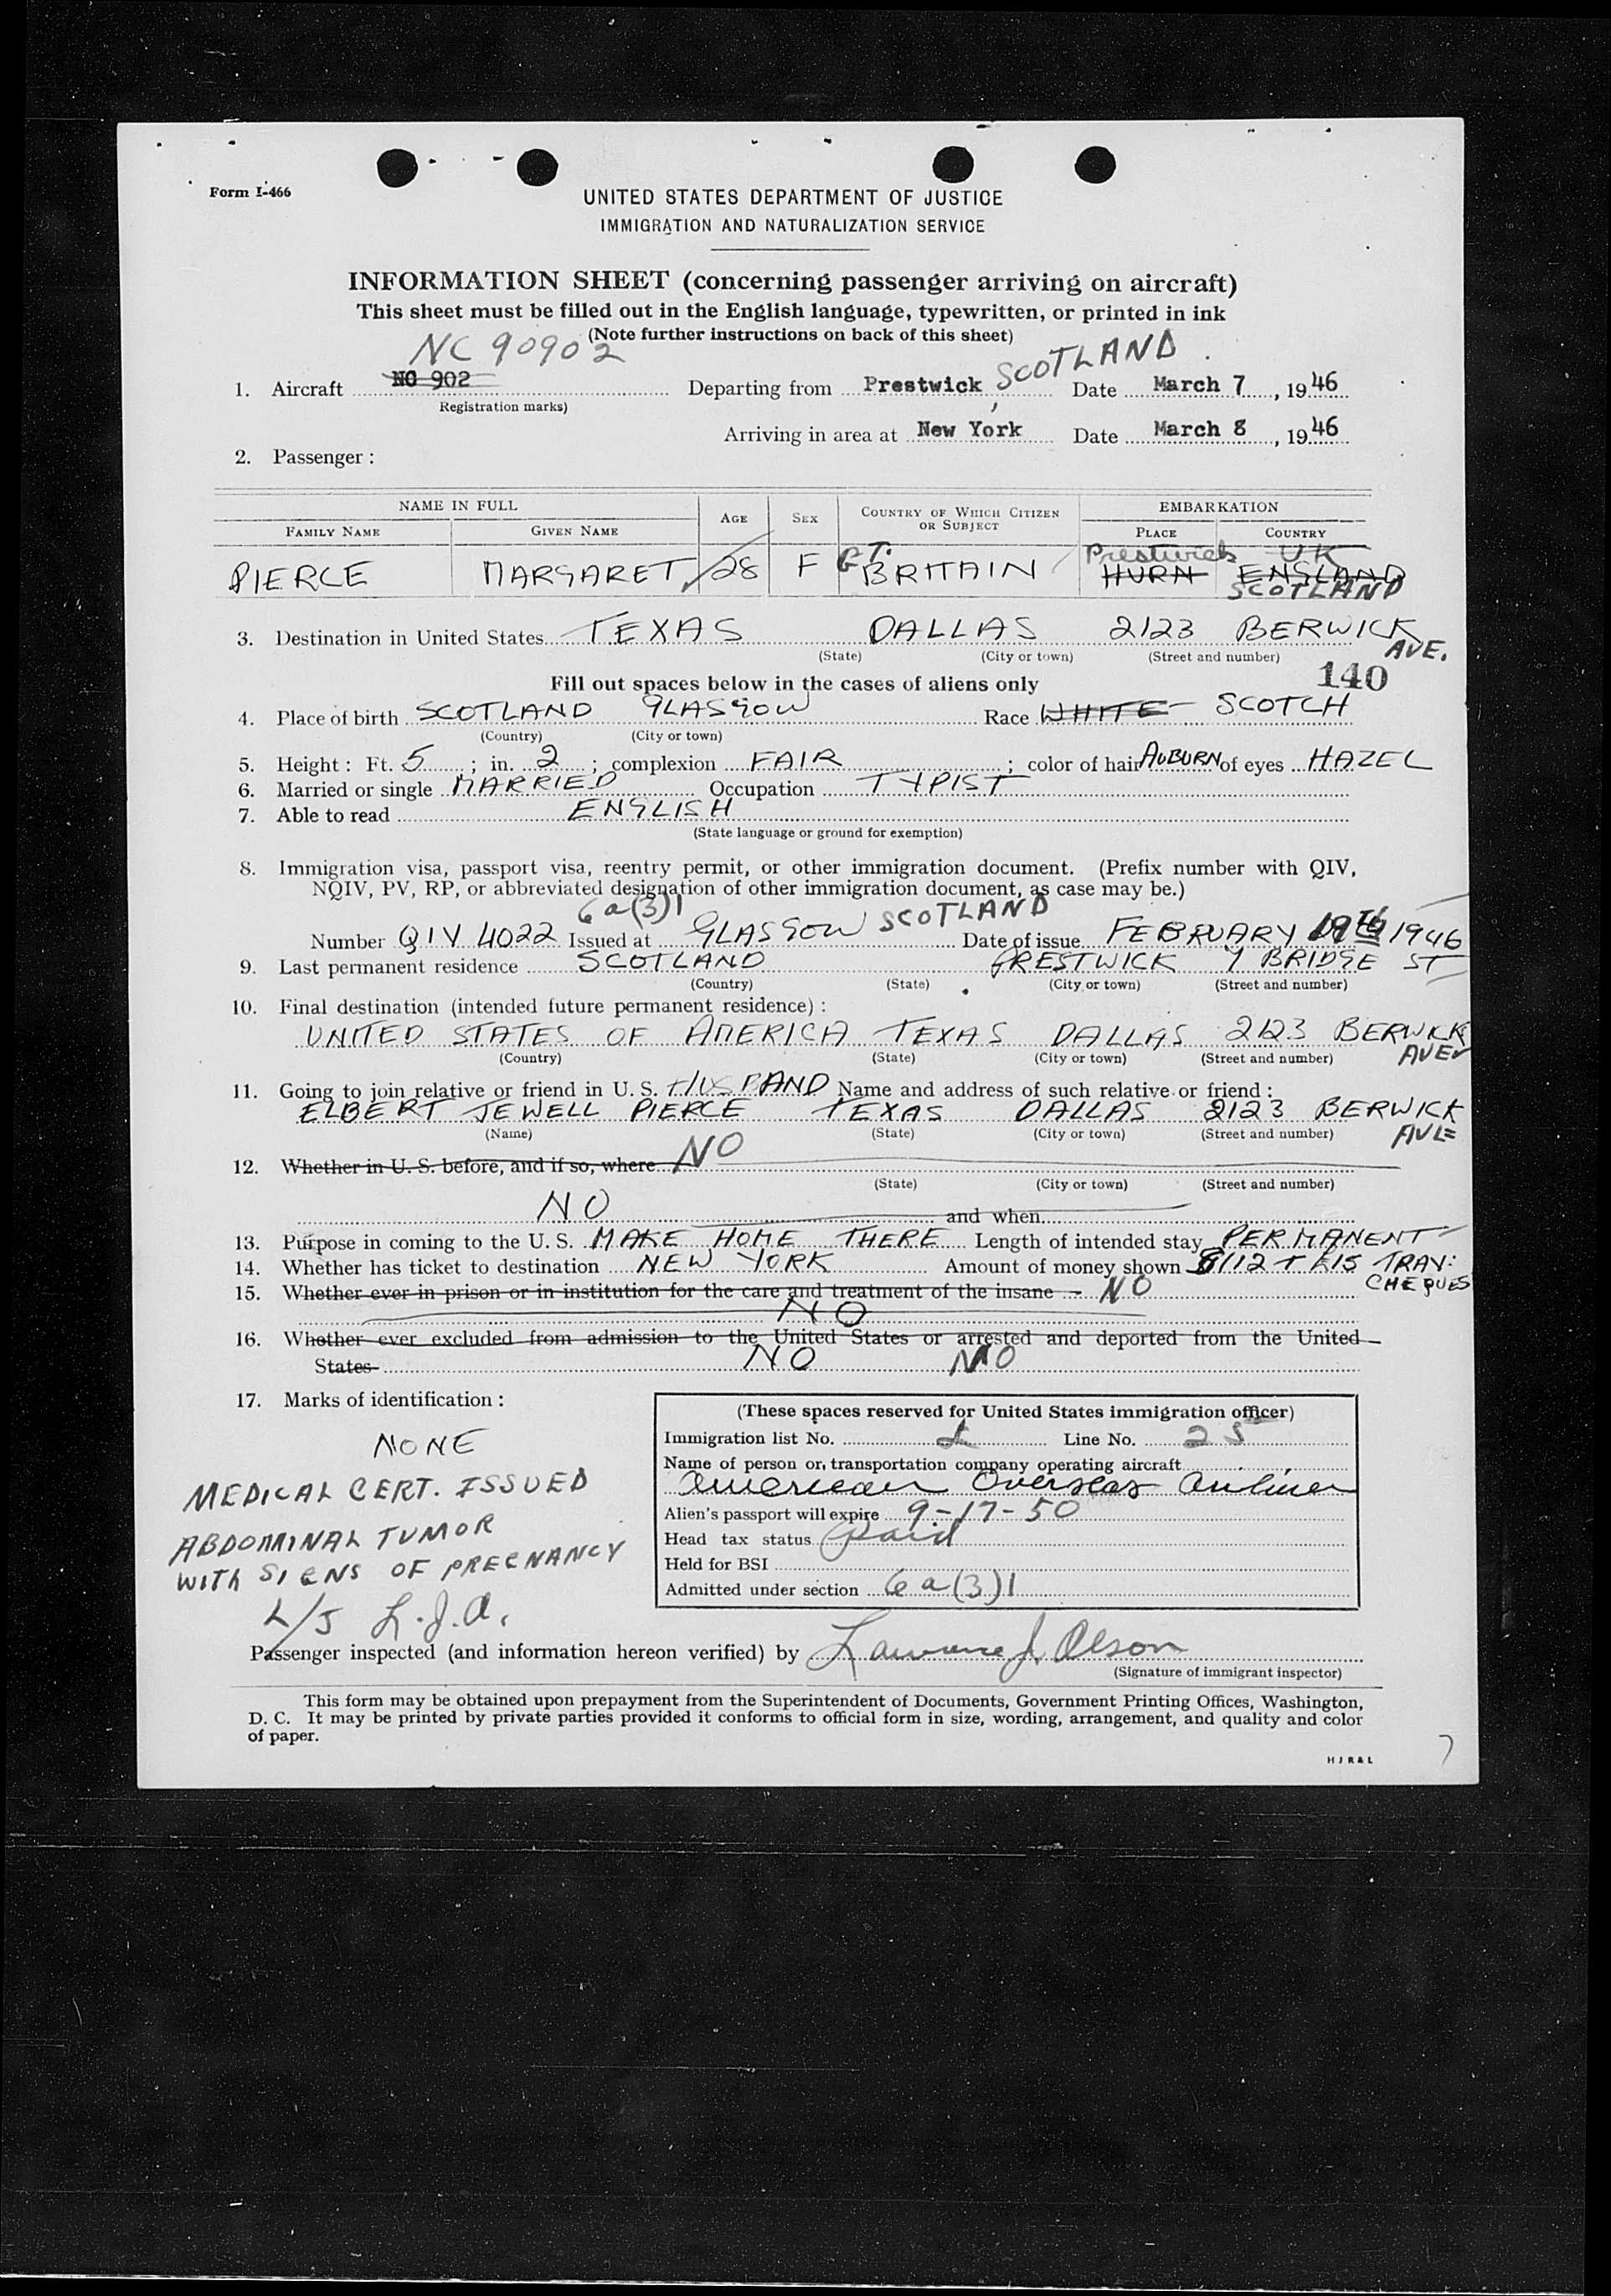 Form I-466
UNITED STATES DEPARTMENT OF JUSTICE
IMMIGRATION AND NATURALIZATION SERVICE
INFORMATION SHEET (concerning passenger arriving on aircraft)
This sheet must be filled out in the English language, typewritten, or printed in ink
(Note further instructions on back of this sheet)
NC 90902 SCOTLAND
1. Aircraft NC 902 Departing from Prestwick Date March 7, 1946
Registration marks)
Arriving in area at New York Date March 8, 1946
2. Passenger:
NAME IN FULL AGE SEX COUNTRY OF WHICH CITIZEN OR SUBJECT EMBARKATION
FAMILY NAME GIVEN NAME PLACE COUNTRY
Prestwick UK
PIERCE MARGARET 28 F GT. BRITAIN HURN ENGLAND
SCOTLAND
3. Destination in United States TEXAS DALLAS 2123 BERWICK AVE.
(State) (City or town) (Street and number)
140
Fill out spaces below in the cases of aliens only
4. Place of birth SCOTLAND GLASGOW Race WHITE SCOTCH
(Country) (City or town)
5. Height: Ft. 5; in. 2; complexion FAIR; color of hair AUBURN of eyes HAZEL
6. Married or single MARRIED Occupation TYPIST
7. Able to read ENGLISH
(State language or ground for exemption)
8. Immigration visa, passport visa, reentry permit, or other immigration document. (Prefix number with QIV,
NQIV, PV, RP, or abbreviated designation of other immigration document, as case may be.)
6a(3)1
Number QIV 4022 Issued at GLASGOW SCOTLAND Date of issue FEBRUARY 1946
9. Last permanent residence SCOTLAND PRESTWICK BRIDGE ST
(Country) (State) (City or town) (Street and number)
10. Final destination (intended future permanent residence):
UNITED STATES OF AMERICA TEXAS DALLAS 2123 BERWICK AVE
(Country) (State) (City or town) (Street and number)
11. Going to join relative or friend in U. S. HUSBAND Name and address of such relative or friend:
ELBERT JEWELL PIERCE TEXAS DALLAS 2123 BERWICK AVE
(Name) (State) (City or town) (Street and number)
12. Whether in U. S. before, and if so, where NO
(State) (City or town) (Street and number)
NO and when
13. Purpose in coming to the U. S. MAKE HOME THERE Length of intended stay PERMANENT
14. Whether has ticket to destination NEW YORK Amount of money shown $112 + £15 TRAV: CHEQUES
15. Whether ever in prison or in institution for the care and treatment of the insane - NO
NO
16. Whether ever excluded from admission to the United States or arrested and deported from the United
States NO NO
17. Marks of identification:
NONE
MEDICAL CERT. ISSUED
ABDOMINAL TUMOR
WITH SIGNS OF PREGNANCY
L/J L.J.O.
(These spaces reserved for United States immigration officer)
Immigration list No. Line No. 25
Name of person or transportation company operating aircraft
American Overseas Airlines
Alien's passport will expire 9-17-50
Head tax status Paid
Held for BSI
Admitted under section 6a(3)1
Passenger inspected (and information hereon verified) by Lawrence J. Olson
(Signature of immigrant inspector)
This form may be obtained upon prepayment from the Superintendent of Documents, Government Printing Offices, Washington,
D. C. It may be printed by private parties provided it conforms to official form in size, wording, arrangement, and quality and color
of paper.
H J R & L